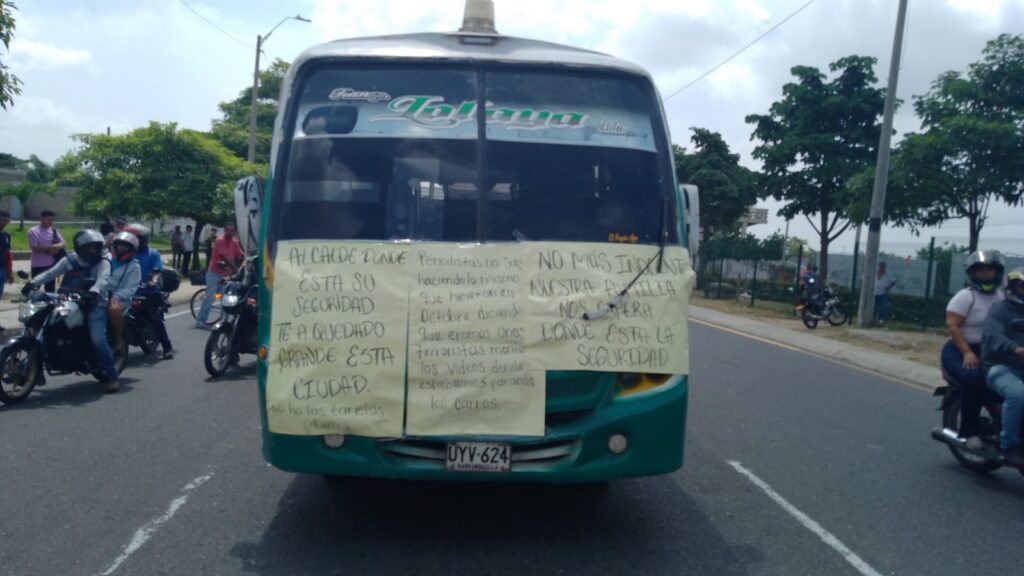 Trans
La Playa
Ltda.
ALCALDE DONDE
ESTA SU
SEGURIDAD
TE A QUEDADO
GRANDE ESTA
CIUDAD.
NO ha las tarjetas
Periodistas no sige
haciendo lo mismo
que hicieron en
Octubre diciendo
que eramos unos
terroristas
los videos donde
estabamos parando
los carros.
NO MAS
NUESTRA FAMILIA
NOS ESPERA
DONDE ESTA LA
SEGURIDAD
UYV-624
BARRANQUILLA